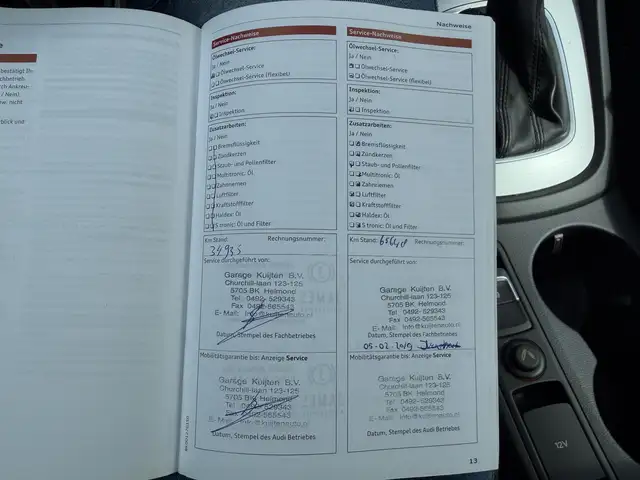 Nachweise
Service-Nachweise
Ölwechsel-Service:
Ja / Nein
Ölwechsel-Service
Ölwechsel-Service (flexibel)
Inspektion:
Ja / Nein
Inspektion
Zusatzarbeiten:
Ja / Nein
Bremsflüssigkeit
Zündkerzen
Staub- und Pollenfilter
Multitronic: Öl
Zahnriemen
Luftfilter
Kraftstofffilter
Haldex: Öl
S tronic: Öl und Filter
Km Stand: Rechnungsnummer:
Service durchgeführt von:
Garage Kuijten B.V.
Churchill-laan 123-125
5705 BK Helmond
Tel 0492- 529343
Fax 0492-565543
E-Mail: info@kuijtenauto.nl
Datum, Stempel des Fachbetriebes
Mobilitätsgarantie bis: Anzeige Service
Garage Kuijten B.V.
Churchill-laan 123-125
5705 BK Helmond
Tel 0492- 529343
Fax 0492-565543
E-Mail: info@kuijtenauto.nl
Datum, Stempel des Audi Betriebes
Service-Nachweise
Ölwechsel-Service:
Ja / Nein
Ölwechsel-Service
Ölwechsel-Service (flexibel)
Inspektion:
Ja / Nein
Inspektion
Zusatzarbeiten:
Ja / Nein
Bremsflüssigkeit
Zündkerzen
Staub- und Pollenfilter
Multitronic: Öl
Zahnriemen
Luftfilter
Kraftstofffilter
Haldex: Öl
S tronic: Öl und Filter
Km Stand: Rechnungsnummer:
Service durchgeführt von:
Garage Kuijten B.V.
Churchill-laan 123-125
5705 BK Helmond
Tel 0492- 529343
Fax 0492-565543
E-Mail: info@kuijtenauto.nl
Datum, Stempel des Fachbetriebes
05-02-2019
Mobilitätsgarantie bis: Anzeige Service
Garage Kuijten B.V.
Churchill-laan 123-125
5705 BK Helmond
Tel 0492- 529343
Fax 0492-565543
E-Mail: info@kuijtenauto.nl
Datum, Stempel des Audi Betriebes
13
12V